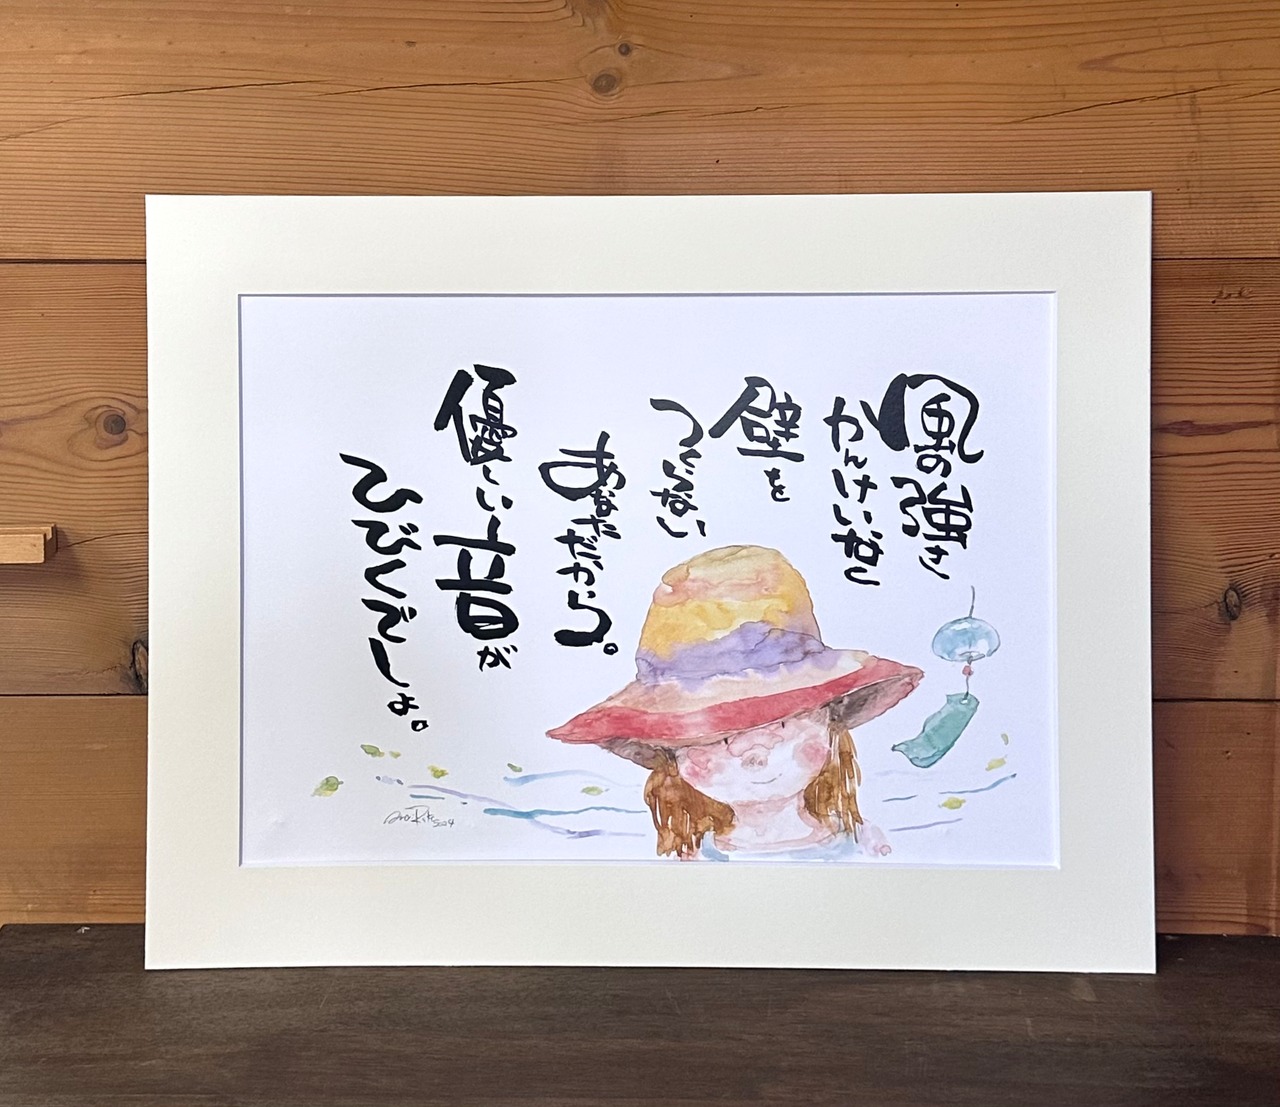 風の強さ
かんけいなく
壁を
つくらない
あなただから。
優しい音が
ひびくでしょ。